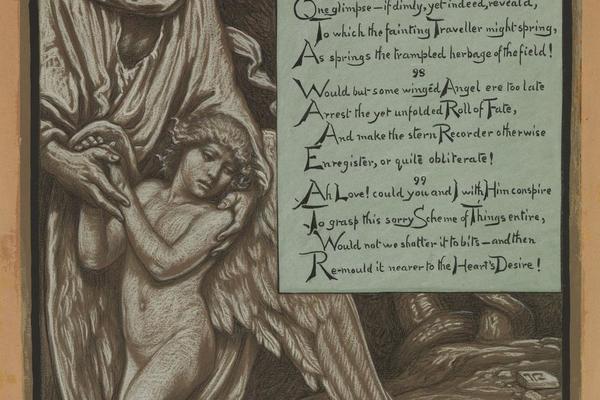 One glimpse—if dimly, yet indeed, reveal'd,
To which the fainting Traveller might spring,
As springs the trampled herbage of the field!
98
Would but some wingéd Angel ere too late
Arrest the yet unfolded Roll of Fate,
And make the stern Recorder otherwise
Enregister, or quite obliterate!
99
Ah Love! could you and I with Him conspire
To grasp this sorry Scheme of Things entire,
Would not we shatter it to bits—and then
Re-mould it nearer to the Heart's Desire!